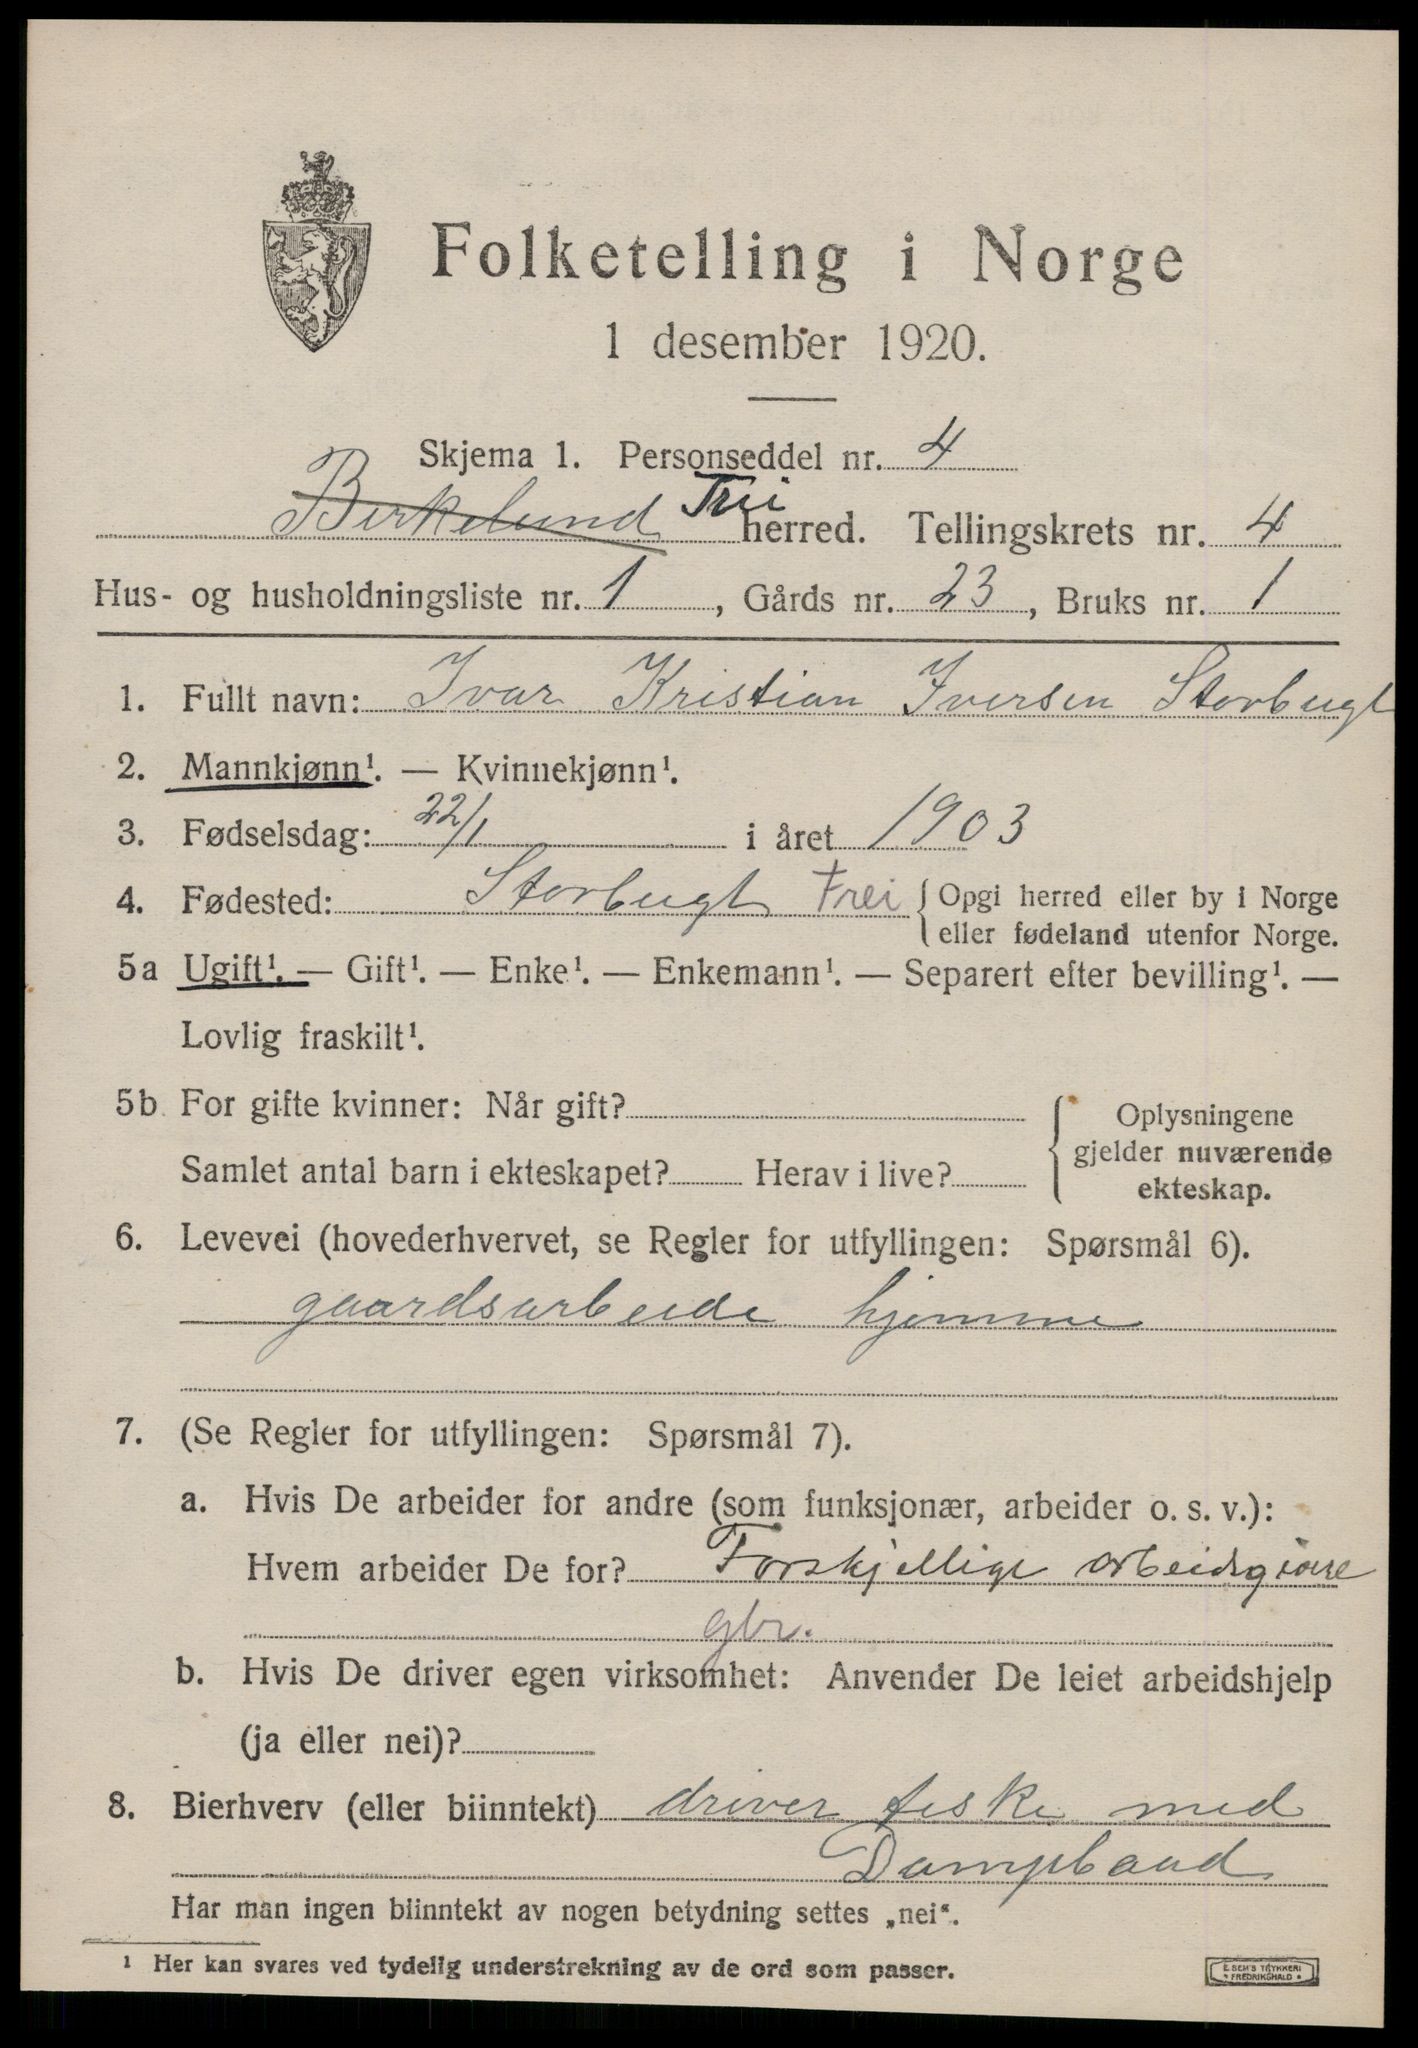 Folketelling i Norge
1 desember 1920.
Skjema 1. Personseddel nr. 4
Birkelund Frei herred. Tellingskrets nr. 4
Hus- og husholdningsliste nr. 1, Gårds nr. 23, Bruks nr. 1
1. Fullt navn: Ivar Kristian Iversen Storbugt
2. Mannkjønn¹. — Kvinnekjønn¹.
3. Fødselsdag: 22/1 i året 1903
4. Fødested: Storbugt Frei { Opgi herred eller by i Norge
eller fødeland utenfor Norge.
5a Ugift¹. — Gift¹. — Enke¹. — Enkemann¹. — Separert efter bevilling¹. —
Lovlig fraskilt¹.
5b For gifte kvinner: Når gift?
Samlet antal barn i ekteskapet? Herav i live?
{ Oplysningene
gjelder nuværende
ekteskap.
6. Levevei (hovederhvervet, se Regler for utfyllingen: Spørsmål 6).
gaardsarbeide hjemme
7. (Se Regler for utfyllingen: Spørsmål 7).
a. Hvis De arbeider for andre (som funksjonær, arbeider o. s. v.):
Hvem arbeider De for? Forskjellige arbeidsgivere
gbr.
b. Hvis De driver egen virksomhet: Anvender De leiet arbeidshjelp
(ja eller nei)?
8. Bierhverv (eller biinntekt) driver feske med
Dampbaad
Har man ingen biinntekt av nogen betydning settes „nei“.
¹ Her kan svares ved tydelig understrekning av de ord som passer.
E. SEM'S TRYKKERI
FREDRIKSHALD